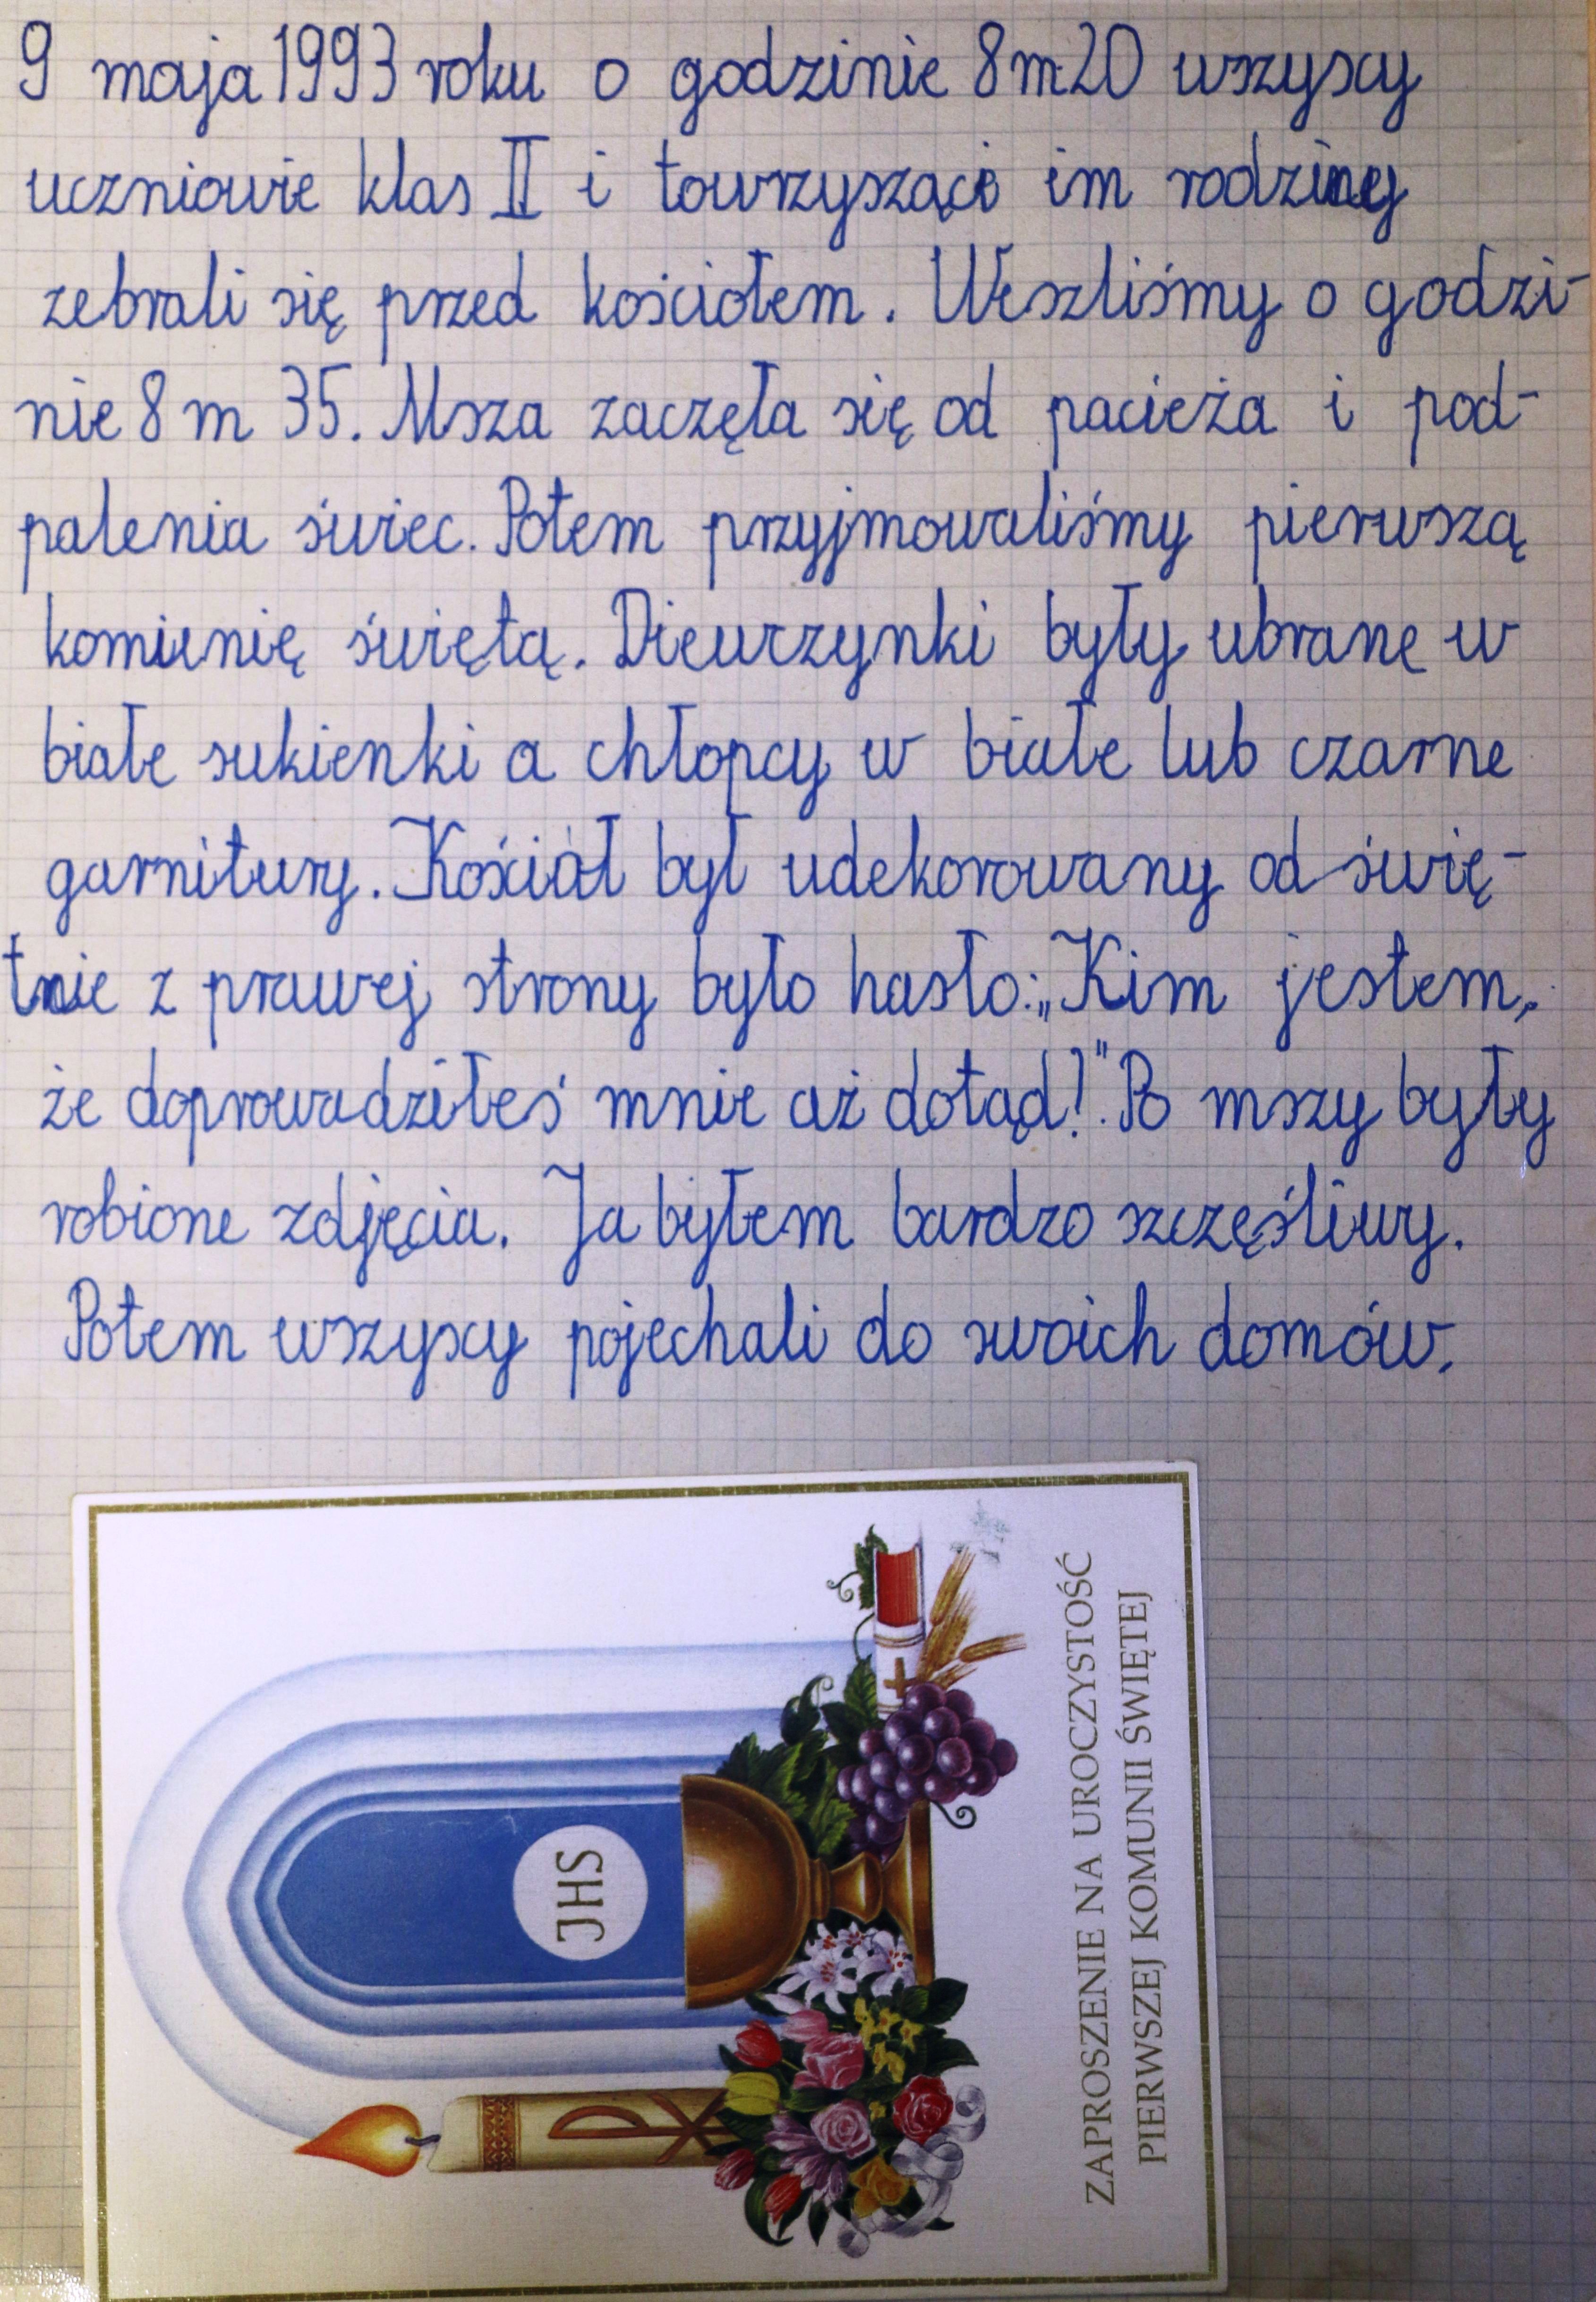 9 maja 1993 roku o godzinie 8 m 20 wszyscy
uczniowie klas II i towrzyszące im rodziny
zebrali się przed kościołem. Weszliśmy o godzi-
nie 8 m 35. Msza zaczęła się od pacieża i pod-
palenia świec. Potem przyjmowaliśmy pierwszą
komienię świętą. Diewczynki były ubrane w
białe sukienki a chłopcy w białe lub czarne
garnitury. Kościół był udekorowany od świę-
tnie z prawej strony było hasło: „Kim jestem,
że doprowadziłeś mnie aż dotąd!". Po mszy były
robione zdjęcia. Ja byłem bardzo szczęśliwy.
Potem wszyscy pojechali do swoich domów.
JHS
ZAPROSZENIE NA UROCZYSTOŚĆ
PIERWSZEJ KOMUNII ŚWIĘTEJ